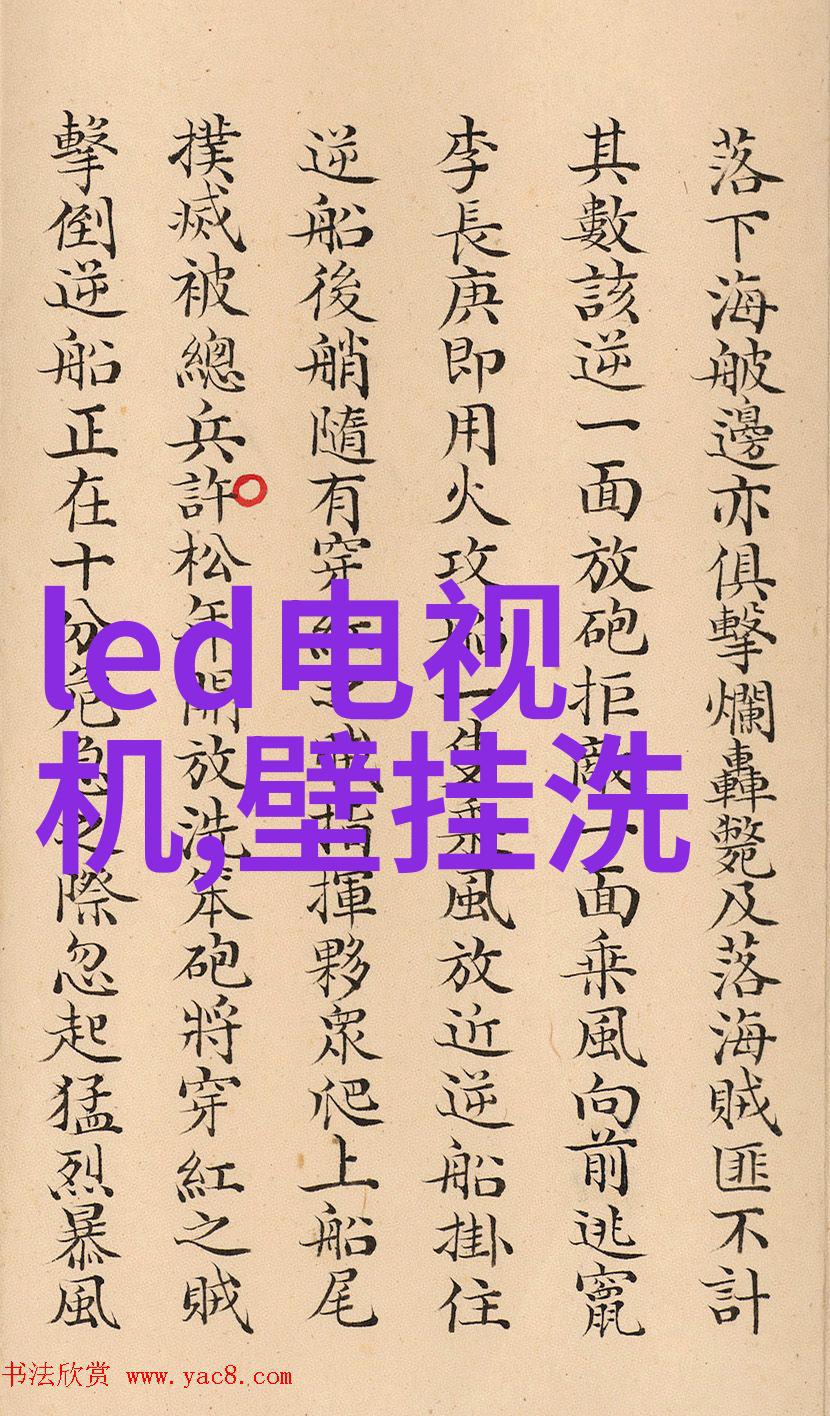 落下海舨邊亦俱擊爛轟斃及落海賊匪不計
其數該逆一面放砲拒敵一面乘風向前逃竄
李長庚即用火攻船一隻乘風放近逆船掛住
逆船後艄隨有穿紅之賊指揮夥眾爬上船尾
撲滅被總兵許松年開放洗笨砲將穿紅之賊
擊倒逆船正在十分危急之際忽起猛烈暴風
led电视
机,壁挂洗
书法欣赏 www.yac8.com